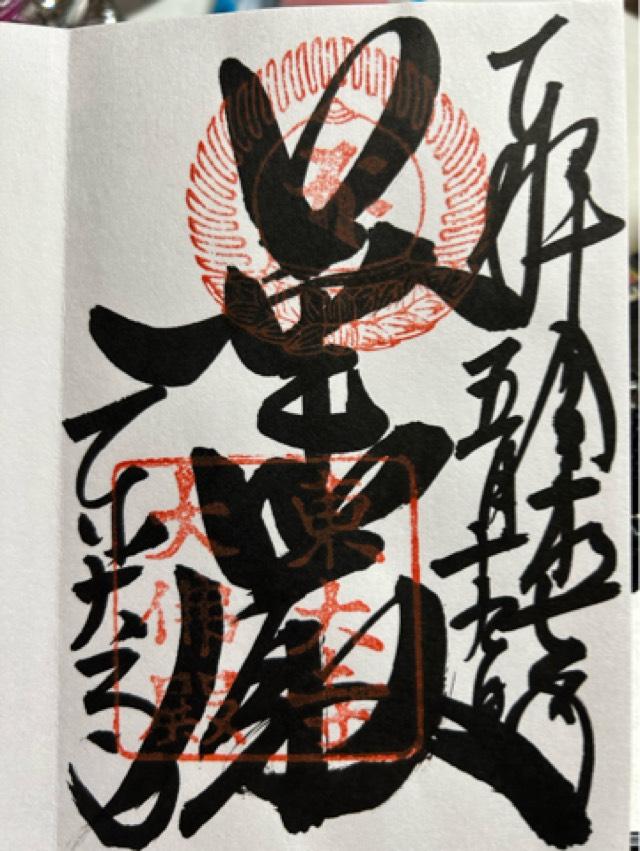 拝 令和七年
五月十九日
華嚴
東大寺
東大寺
大佛殿